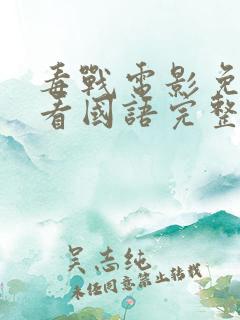 毒戰電影免
看國語完整
吴志纯
未经同意禁止转载